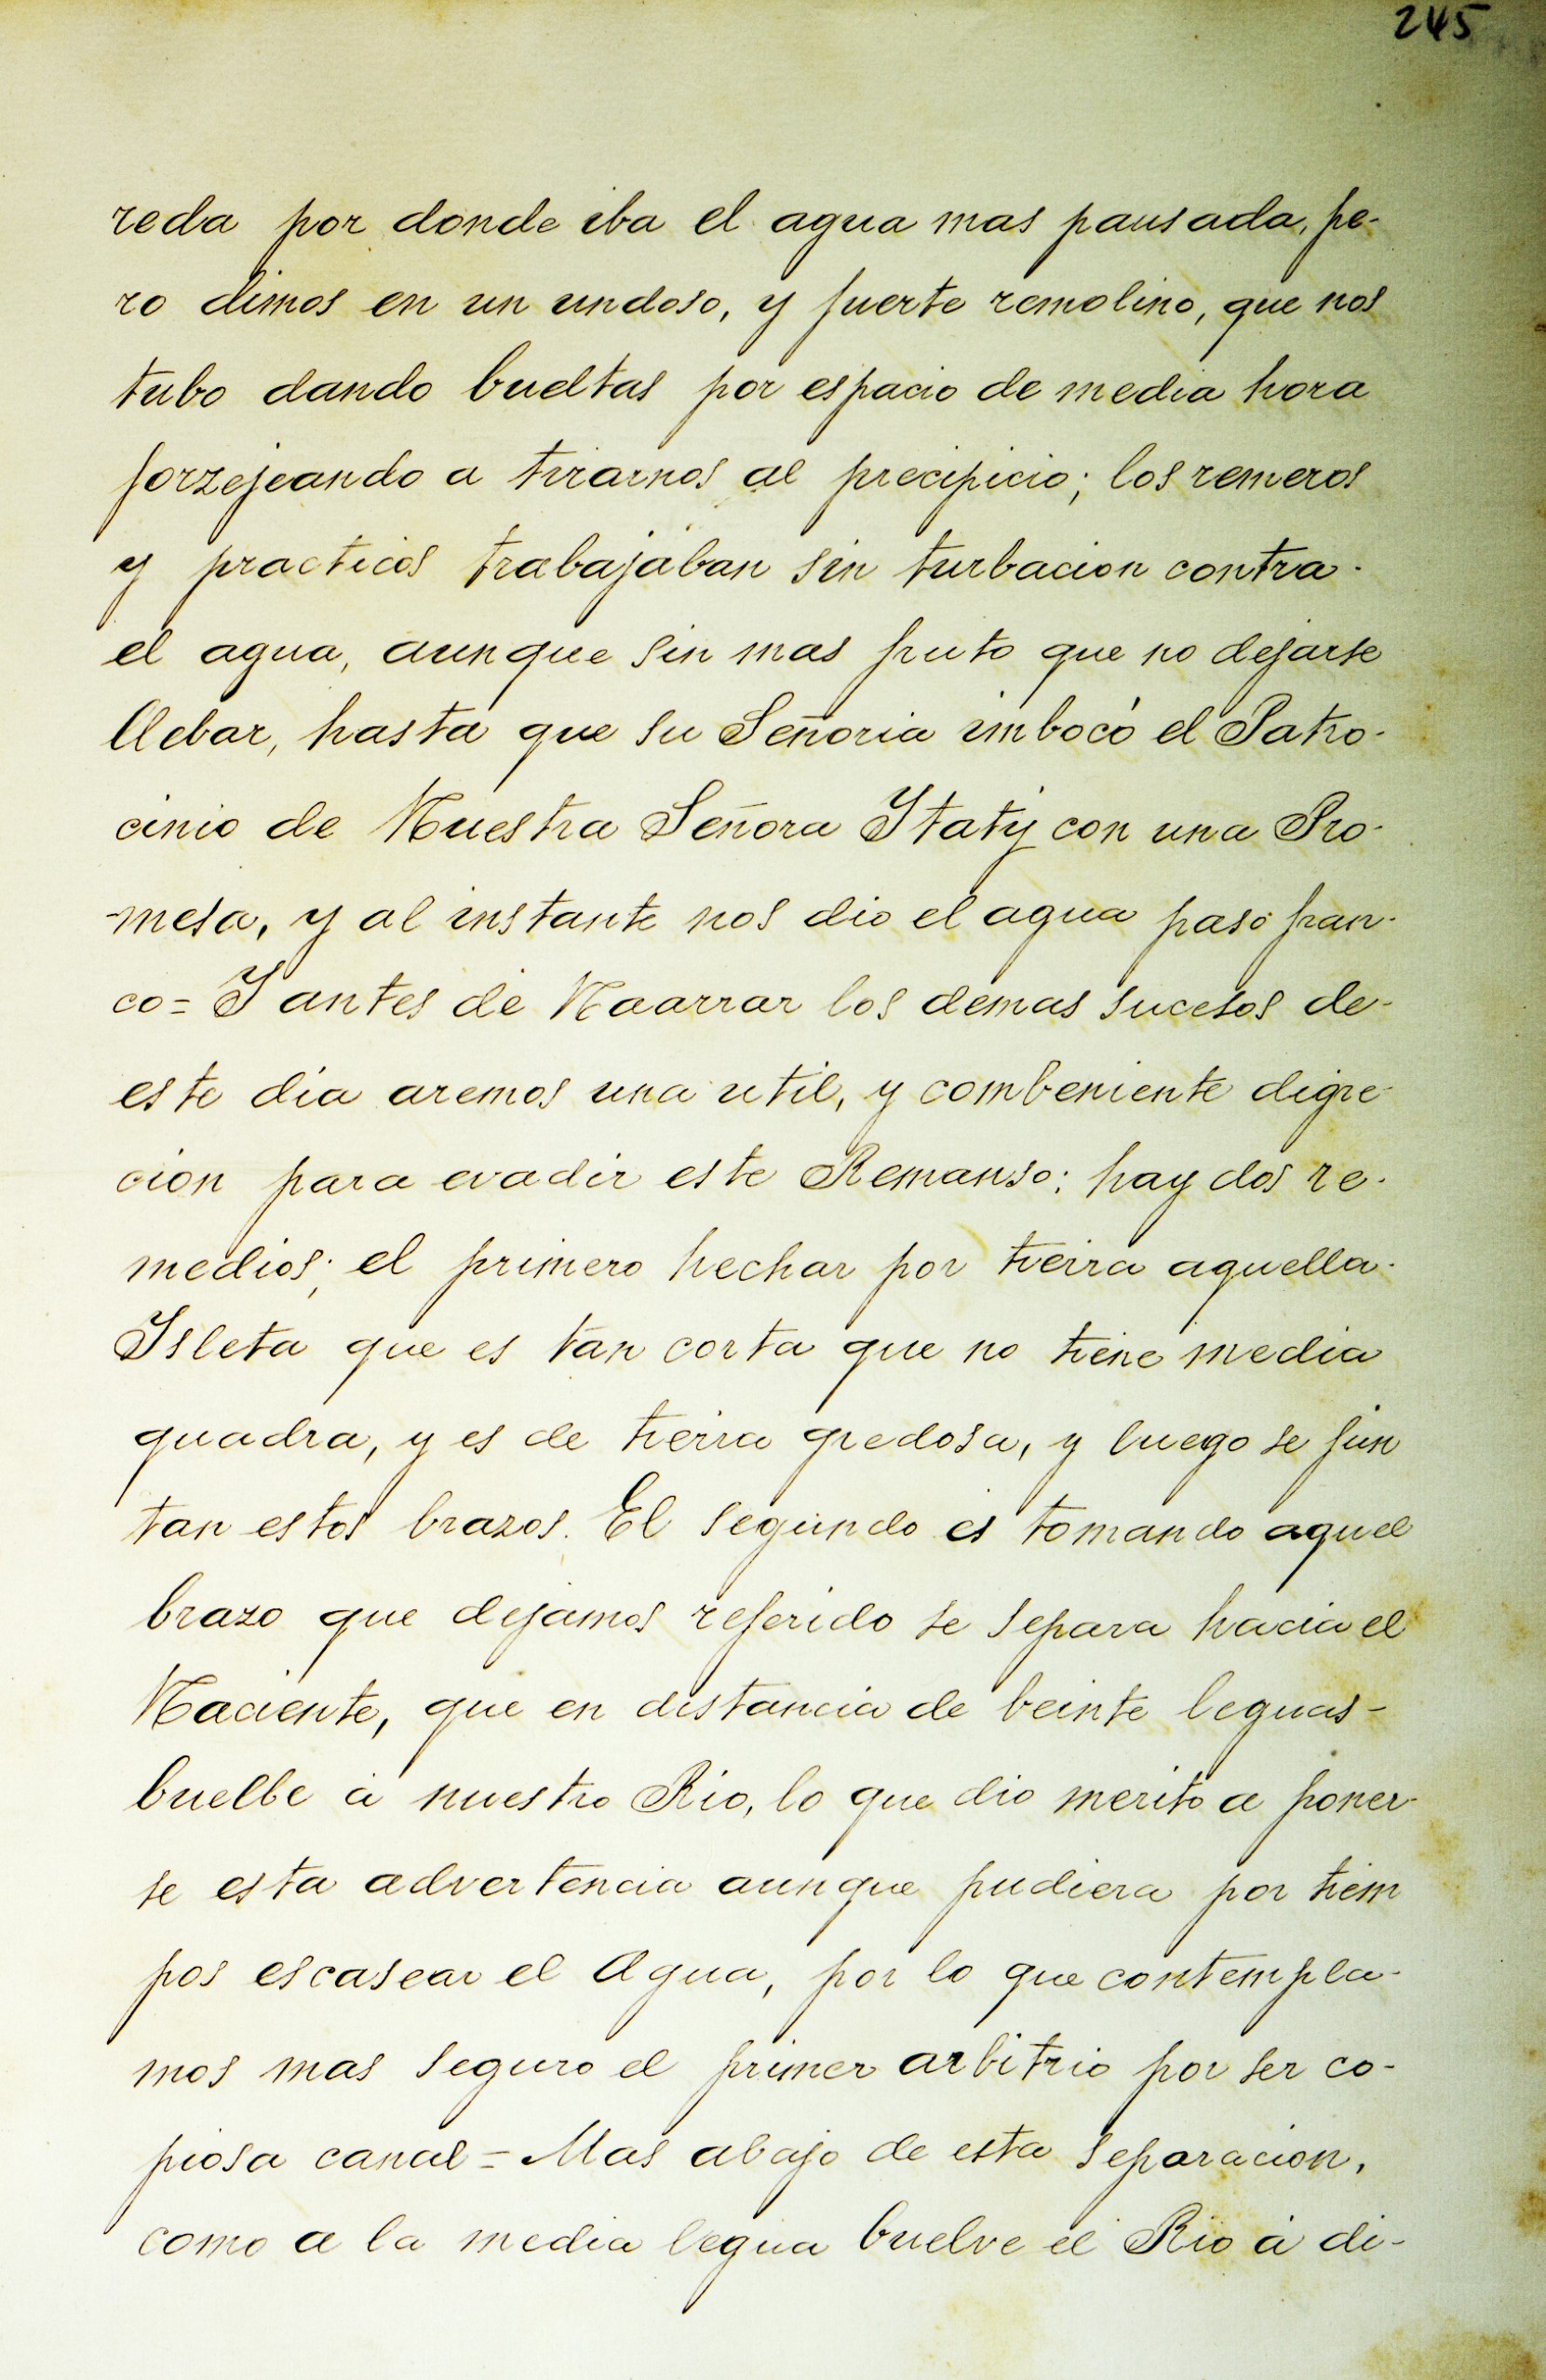 245
reda por donde iba el agua mas pausada, pe-
ro dimos en un undoso, y fuerte remolino, que nos
tubo dando bueltas por espacio de media hora
forzejeando a tirarnos al precipicio; los remeros
y practicos trabajaban sin turbacion contra-
el agua, aunque sin mas fruto que no dejarse
llebar, hasta que su Señoria imbocó el Patro-
cinio de Nuestra Señora Ytaty con una Pro-
-mesa, y al instante nos dio el agua paso fran-
co= Y antes de Naarrar los demas sucesos de-
este dia aremos una util, y combeniente digre-
cion para evadir este Remanso: hay dos re-
medios; el primero hechar por tierra aquella-
Ysleta que es tan corta que no tiene media
quadra, y es de tierra gredosa, y luego se jun
tan estos brazos. El segundo es tomando aquel
brazo que dejamos referido se separa hacia el
Naciente, que en distancia de beinte leguas-
buelbe á nuestro Rio, lo que dio merito a poner-
se esta advertencia aunque pudiera por tiem
pos escasear el Agua, por lo que contempla-
mos mas seguro el primer arbitrio por ser co-
piosa canal = Mas abajo de esta separacion,
como a la media legua buelve el Rio á di-